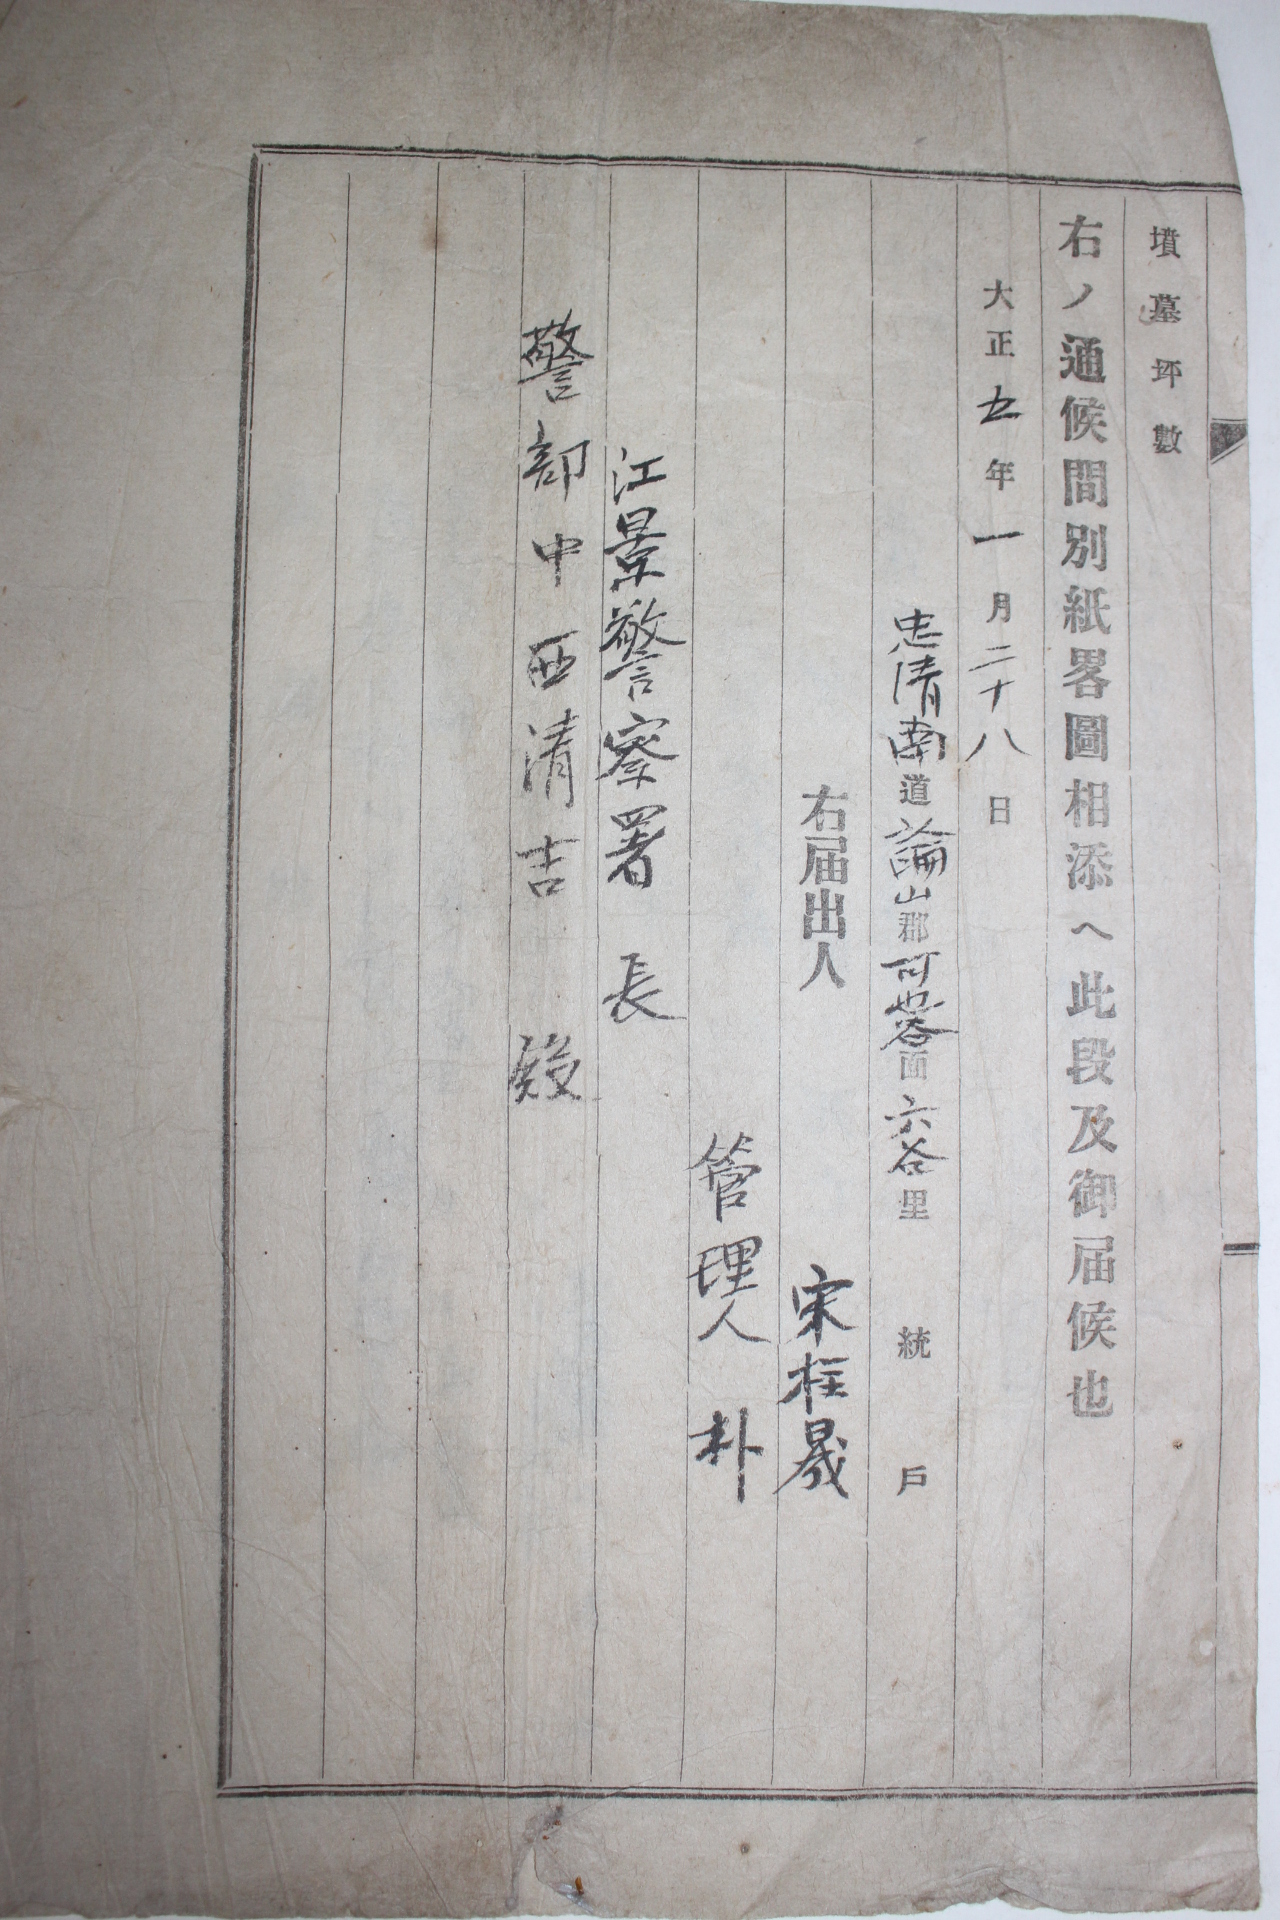 墳墓坪數
右ノ通候間別紙畧圖相添ヘ此段及御届候也
大正五年一月二十八日
忠清南道論山郡可也谷面六谷里 統 戶
右届出人 宋柱晟
管理人 朴
江景警察署長
警部中西清吉 殿